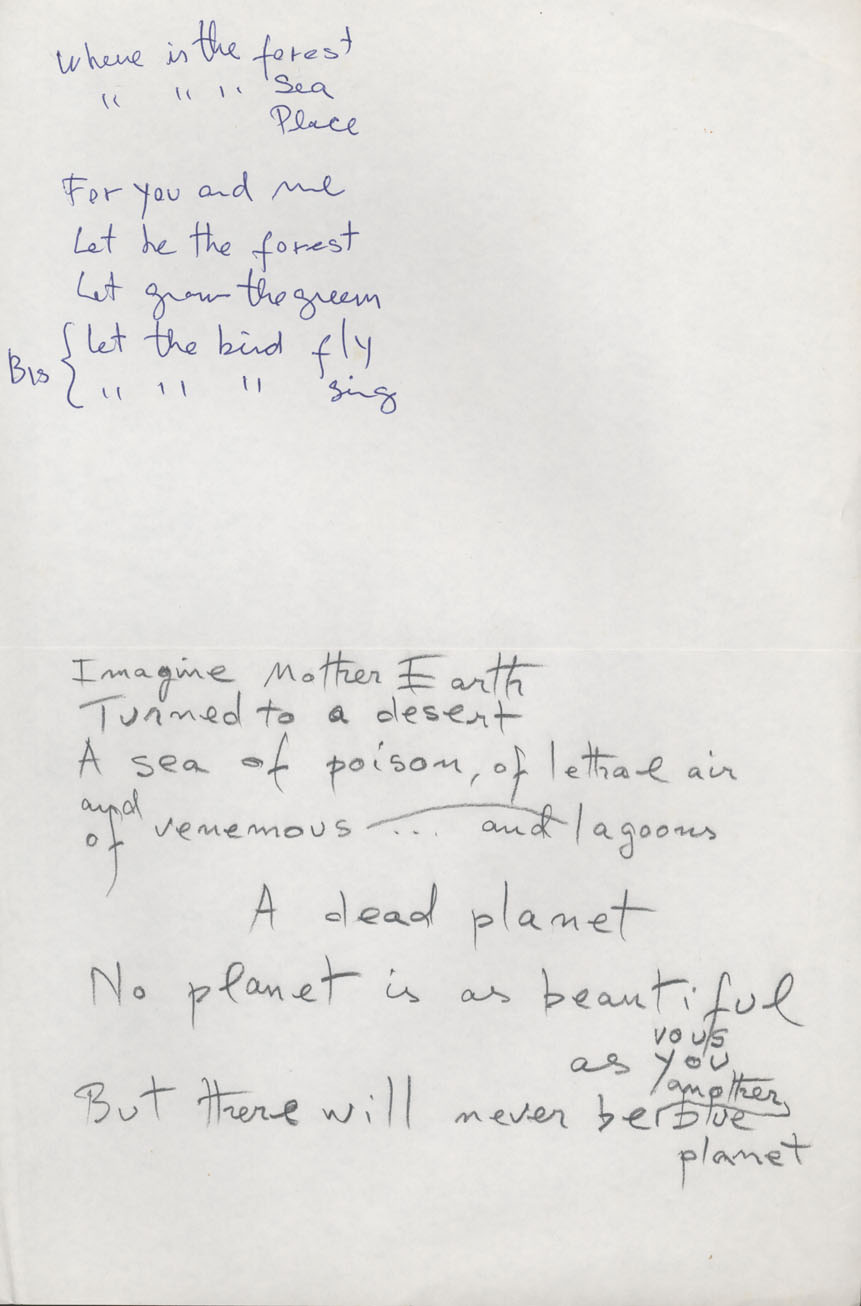 Where is the forest
" " " Sea
Place
For you and me
Let be the forest
Let grow the green
Bis { let the bird fly
" " " sing
Imagine Mother Earth
Turned to a desert
A sea of poison, of lethal air
and
of venemous ... and lagoons
A dead planet
No planet is as beautiful
vous
as you
another
But there will never be blue
planet